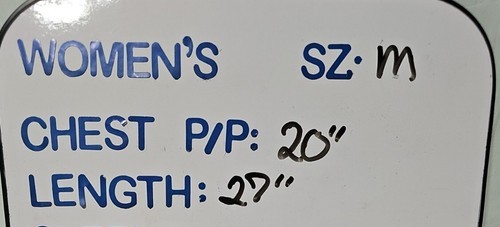 WOMEN'S SZ. M
CHEST P/P: 20"
LENGTH: 27"